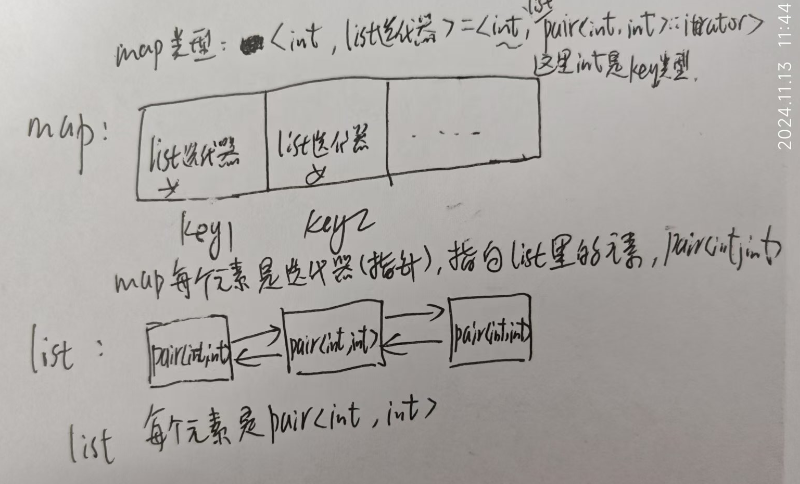 map类型：<int, list迭代器>=<int, list pair(int,int)::iterator>
这里int是key类型.
map: list迭代器 list迭代器 ....
key1 key2
map每个元素是迭代器(指针), 指向list里的元素, pair(int,int)
list: pair(int,int) pair(int,int) pair(int,int)
list 每个元素是pair<int, int>
2024.11.13 11:44